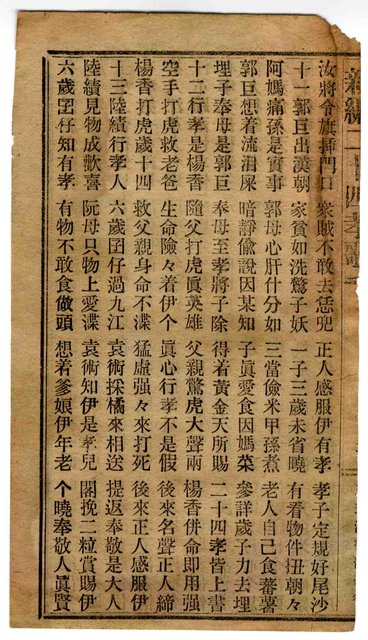 新編二十四孝歌
汝將令旗插門口 衆賊不敢去恁兜 正人感服伊有孝 孝子定規好尾沙
十一郭巨出漢朝 家貧如洗驚子妖 一子三歲未省曉 有看物件扭朝々
阿媽痛孫是實事 郭母心肝什分如 三當儉米甲孫煮 老人自己食蕃薯
郭巨想着流泪屎 暗靜偸說因某知 子眞愛食因媽菜 參詳歲子力去埋
埋子奉母是郭巨 奉母至孝將子除 得着黃金天所賜 二十四孝皆上書
十二行孝是楊香 隨父打虎眞英雄 父親驚虎大聲兩 楊香併命即用强
空手打虎救老爸 生命險々着伊个 眞心行孝不是假 後來名聲正人締
楊香打虎歲十四 救父親身命不渫 猛虎强々來打死 後來正人感服伊
十三陸績行孝人 六歲囝仔過九江 袁術採橘來相送 提返奉敬是大人
陸績見物成歡喜 阮母只物上愛渫 袁術知伊是孝兒 閣挽二粒賞賜伊
六歲囝仔知有孝 有物不敢食做頭 想着爹娘伊年老 个曉奉敬人眞賢